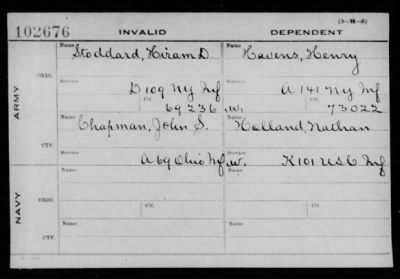 (3-H-3)
102676 INVALID DEPENDENT
Name Stoddard, Hiram D. Name Havens, Henry
ARMY
ORIG. Service D 109 NY Inf Service A 141 NY Inf
Ctf. 69236 W. Ctf. 73022
Name Chapman, John S. Name Holland, Nathan
CTF. Service A 69 Ohio Inf W. Service K 101 USC Inf
NAVY
Name Name
ORIG. Service Ctf. Service Ctf.
Name Name
CTF. Service Service